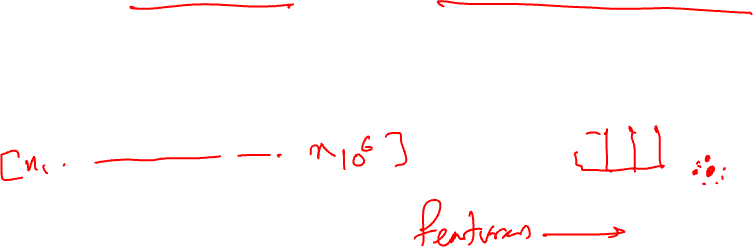 [x₁. ——— —. x₁₀⁶]
Features →